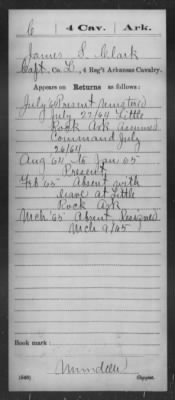 C | 4 Cav. | Ark.
James S. Clark
Capt., Co. L, 4 Reg't Arkansas Cavalry.
Appears on Returns as follows:
July 64 Present
July 22/64 Little
Rock Ark assumed
Command July
26/64
Aug 64 to Jan 65
Present
Feb 65 Absent with
leave at Little
Rock Ark
Mch 65 Absent Resigned
Mch 9/65
Book mark:
(546) Copyist.